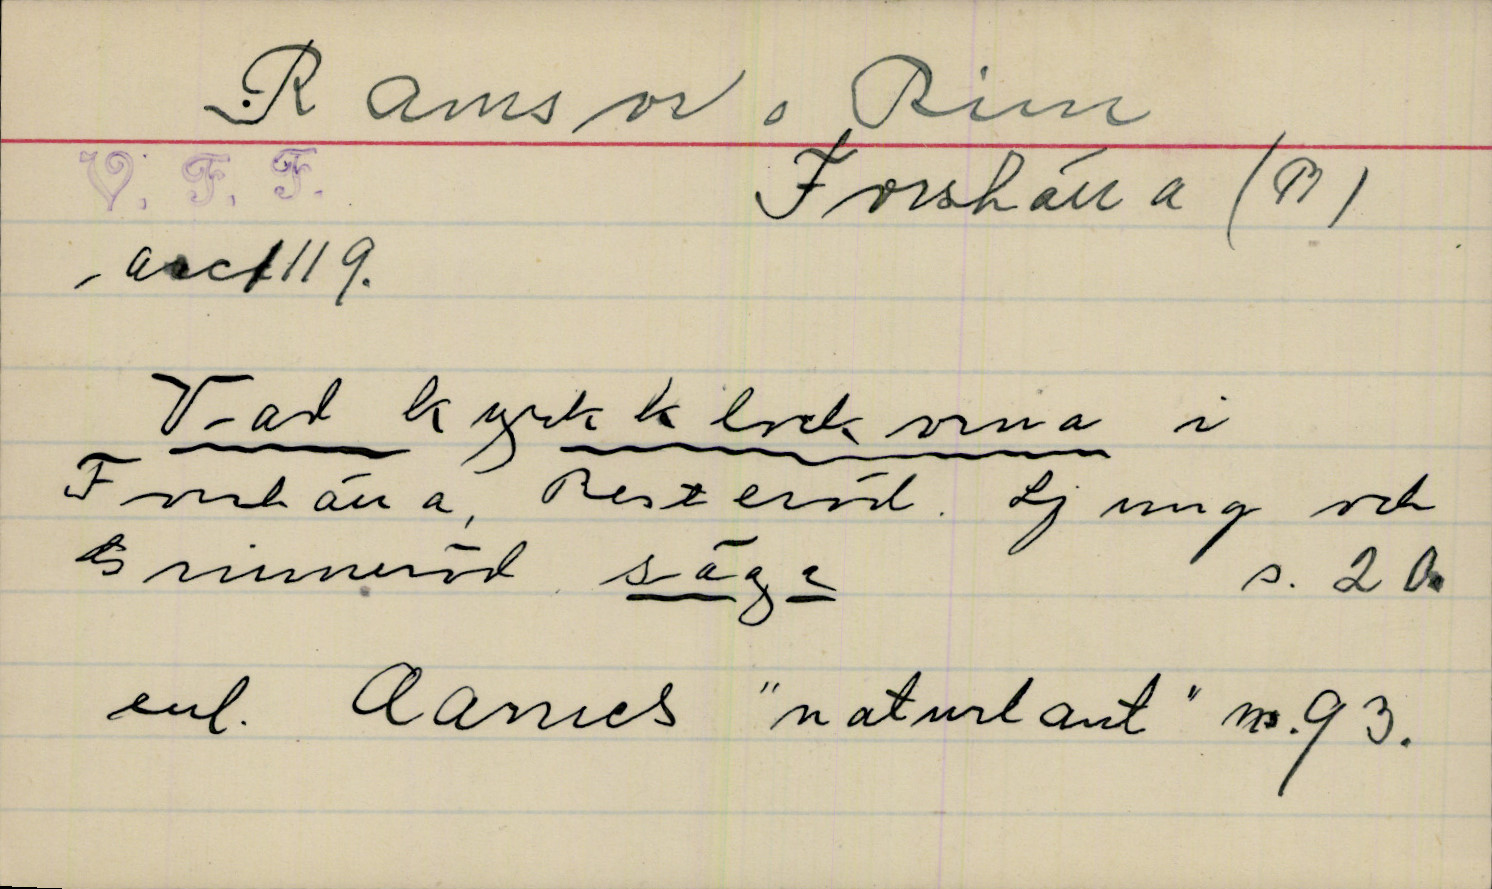 Ramsor o Rim
V. F. F. Forshälla (B)
acc 1119.
Vad kyrkklockorna i
Forshälla, Resteröd. Ljung och
Grinneröd säga s. 20
enl. Aarnes "naturlaut" nr. 93.